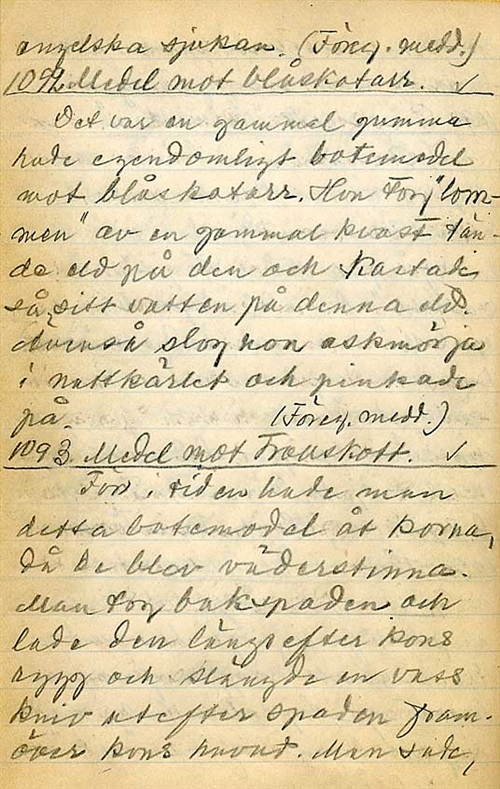 engelska sjukan. (Föreg. medd.)
1092. Medel mot blåskatarr. ✓
Det var en gammal gumma
hade egendomligt botemedel
mot blåskatarr. Hon tog "lom-
men" av en gammal kvast tän-
de eld på den och kastade
så sitt vatten på denna eld.
Även så slog hon askmörja
i nattkärlet och pinkade
på. (Föreg. medd.)
1093. Medel mot Trollskott. ✓
Förr i tiden hade man
detta botemedel åt korna,
då de blev väderstinna.
Man tog bakspaden och
lade den längs efter kons
rygg och slängde en vass
kniv utefter spaden fram-
över kons huvud. Man sade,